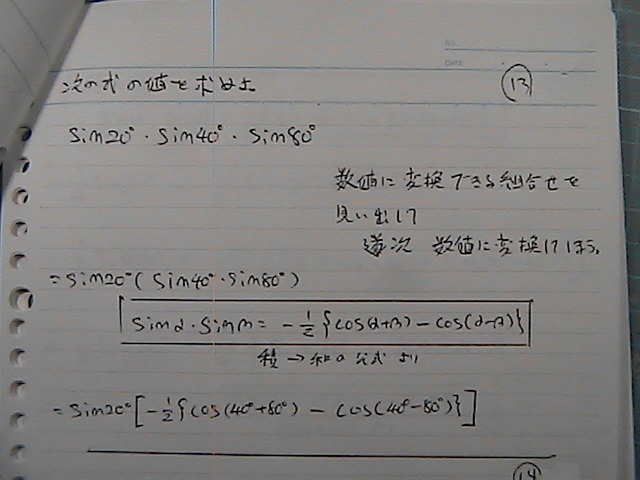 NO.
DATE
次の式の値を求めよ
⑬
sin20°・sin40°・sin80°
数値に変換できる組合せを
見い出して
逐次 数値に変換してほう。
=sin20°(sin40°・sin80°)
sinα・sinβ=-1/2{cos(α+β)-cos(α-β)}
積→和の公式より
=sin20°[-1/2{cos(40°+80°)-cos(40°-80°)}]
⑭